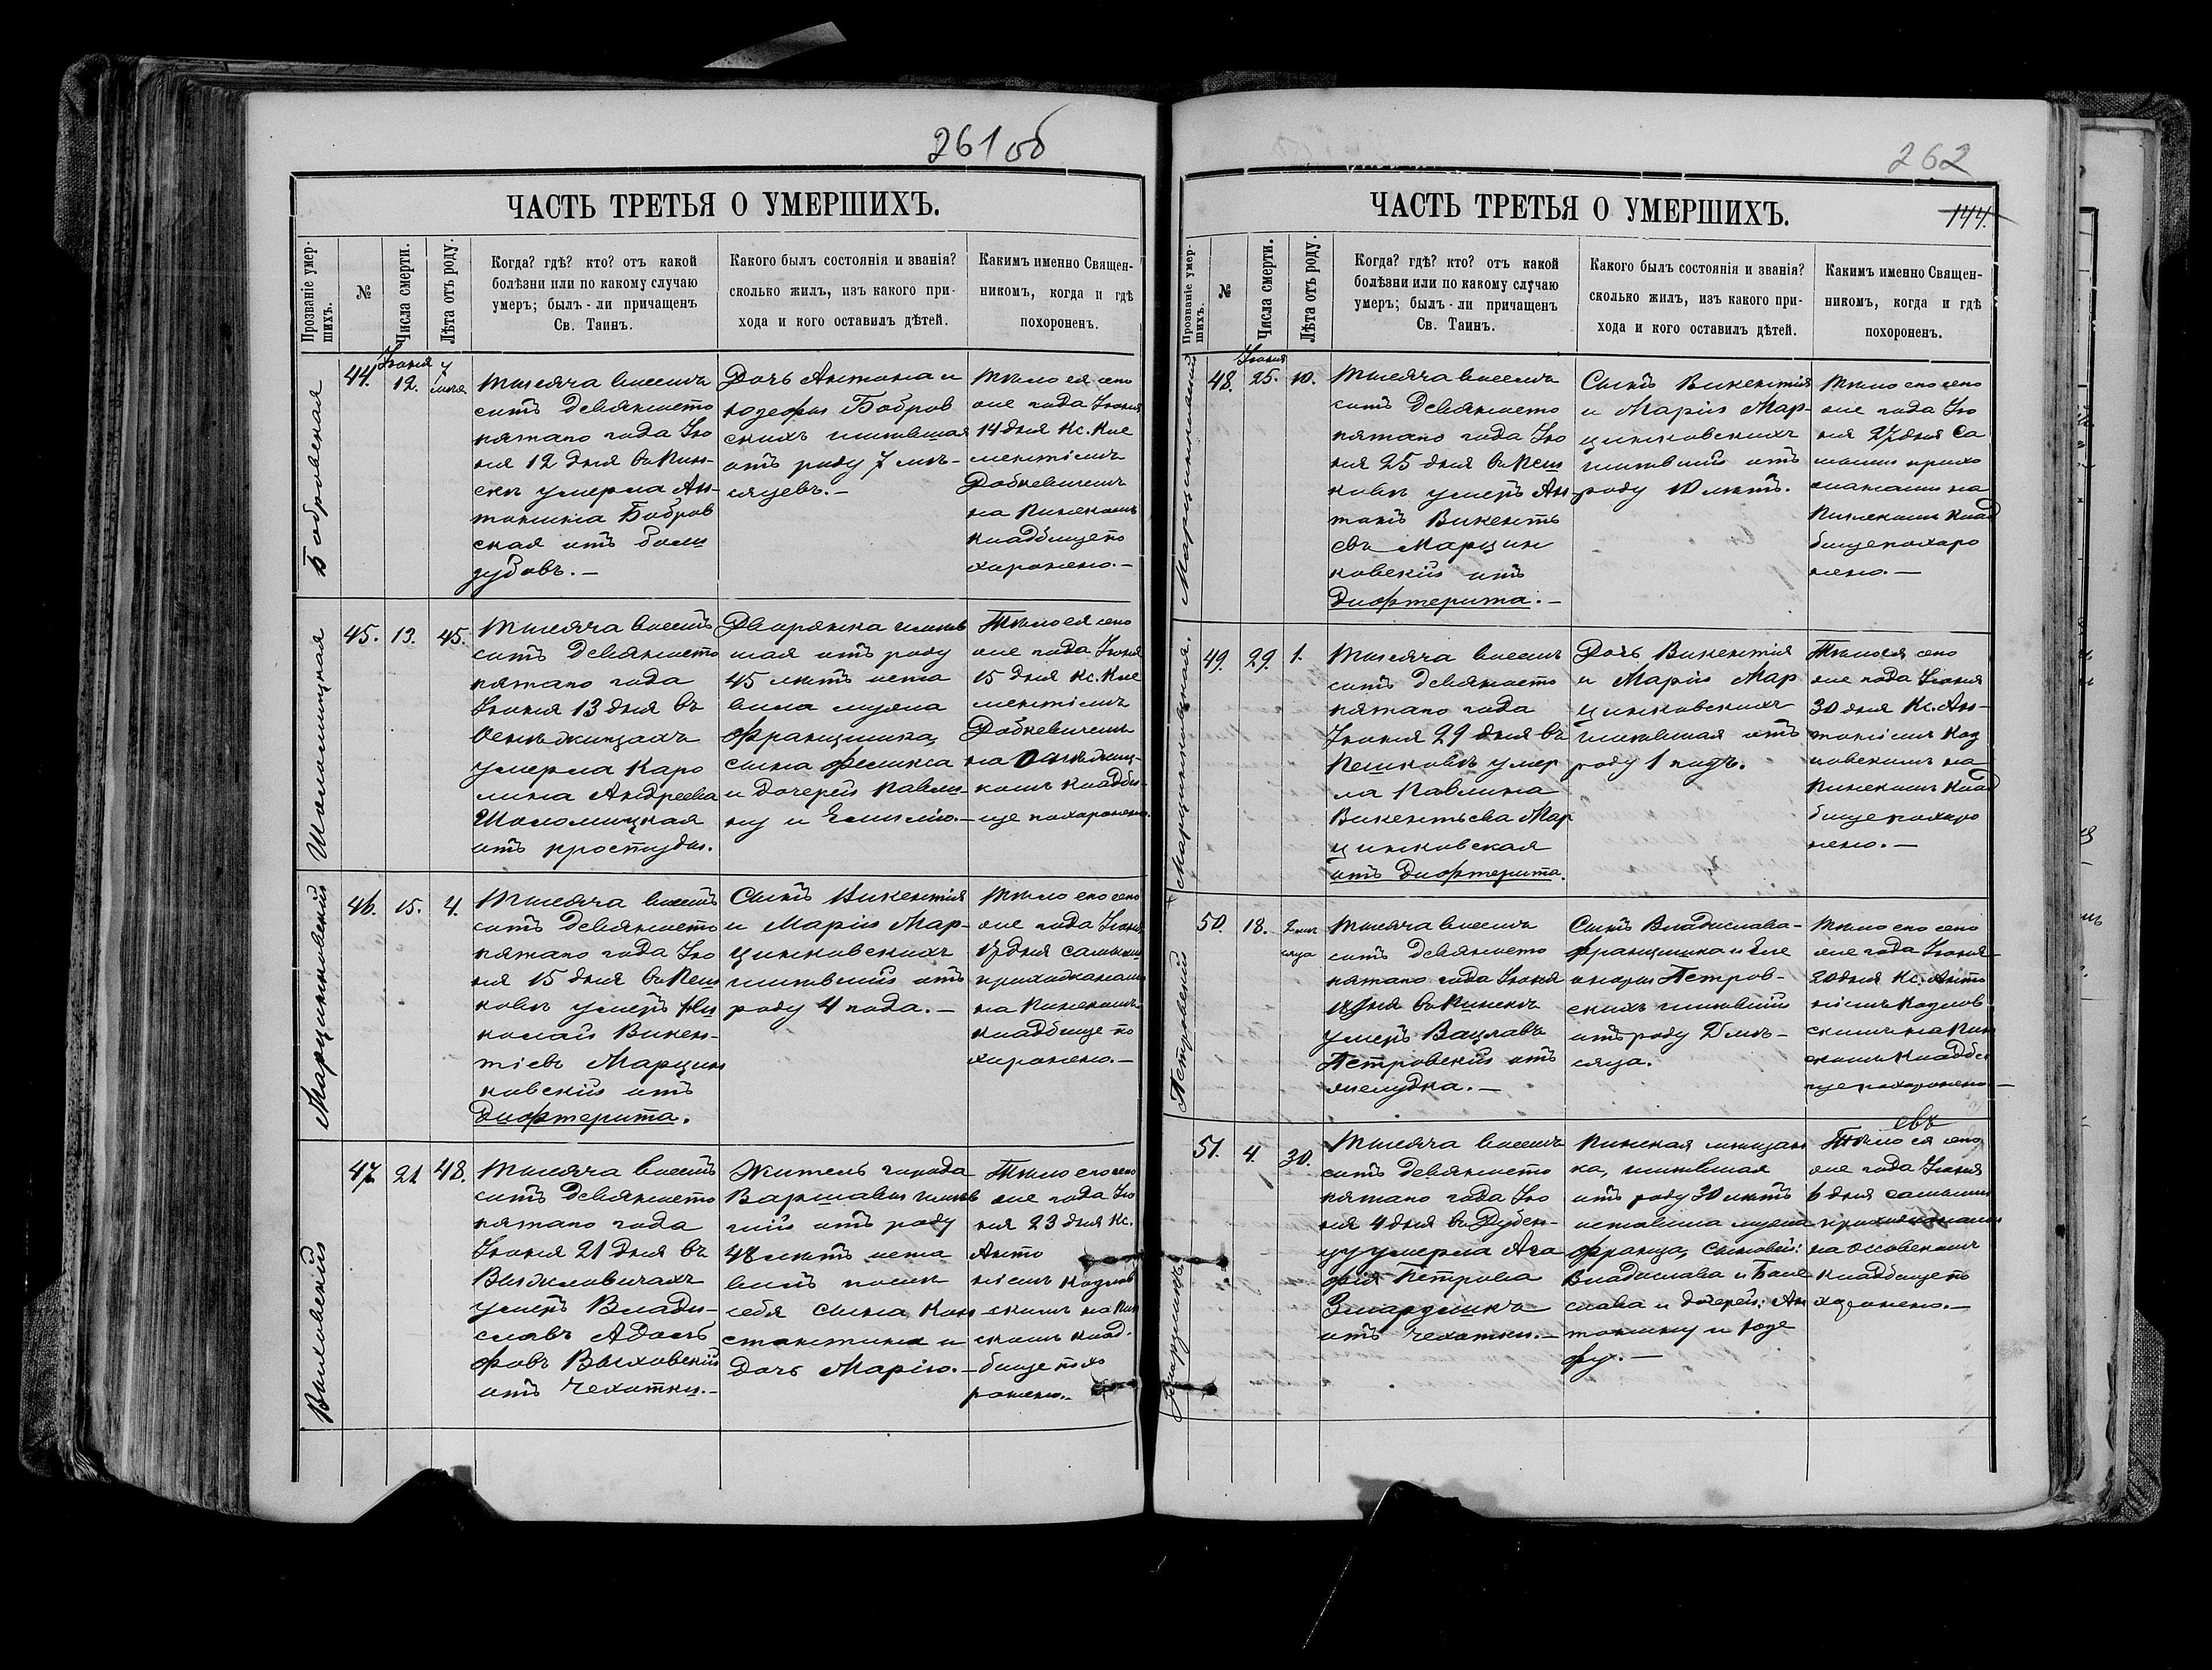 261 об
ЧАСТЬ ТРЕТЬЯ О УМЕРШИХЪ.
Прозваніе умер-
шихъ.
№
Числа смерти.
Лѣта отъ роду.
Когда? гдѣ? кто? отъ какой
болѣзни или по какому случаю
умеръ; былъ-ли причащенъ
Св. Таинъ.
Какого былъ состоянія и званія?
сколько жилъ, изъ какого при-
хода и кого оставилъ дѣтей.
Какимъ именно Священ-
никомъ, когда и гдѣ
похороненъ.
Бобровская
44.
Іюния
12.
7
Тысяча восемь
сотъ девяносто
пятаго года Ію
ня 12 дня въ Пин-
скѣ умерла Ан-
тонина Бобров
ская отъ боли
зубовъ.—
Дочь Антона и
Юзефы Бобров
скихъ жившая
отъ роду 7 мѣ-
сяцевъ.—
Тѣло ея сего
же года Іюня
14 дня Кс. Кле
ментіемъ
Добкевичемъ
на Пинскомъ
кладбище по
хоронено.—
Шоломицкая
45.
13.
45.
Тысяча восемь
сотъ девяносто
пятаго года
Іюня 13 дня въ
умерла Каро
лина Андреева
Шоломицкая
отъ простуды.
Дворянка жив
шая отъ роду
45 лѣтъ оста
вила мужа
Францишка,
сына Феликса
и дочерей Павли-
ну и Емилію.—
Тѣло ея сего
же года Іюня
15 дня Кс. Кле
ментіемъ
Добкевичемъ
на
комъ кладби-
ще похоронено.
Марцинковскій
46.
15.
4.
Тысяча восемь
сотъ девяносто
пятаго года Ію
ня 15 дня въ Пеш
ковѣ умеръ Ни
колай Викен-
тіевъ Марцин
ковскій отъ
Дифтерита.
Сынъ Викентія
и Маріи Мар-
цинковскихъ
жившій отъ
роду 4 года.—
Тѣло его сего
же года Іюня
17 дня самыми
прихожанами
на Пинскомъ
кладбище по
хоронено.—
Выховскій
47.
21
48.
Тысяча восемь
сотъ девяносто
пятаго года
Іюня 21 дня въ
умеръ Влади-
славъ Адоль
фовъ Выховскій
отъ Чахотки.—
Житель города
Варшавы жив
шій отъ роду
48 лѣтъ оста
вилъ послѣ
себя сына Кон
стантина и
дочь Марію.—
Тѣло его сего
же года Ію
ня 23 дня Кс.
Анто
ніемъ Козлов
скимъ на Пин
скомъ клад-
бище похо
ронено.—
262
144.
ЧАСТЬ ТРЕТЬЯ О УМЕРШИХЪ.
Прозваніе умер-
шихъ.
№
Числа смерти.
Лѣта отъ роду.
Когда? гдѣ? кто? отъ какой
болѣзни или по какому случаю
умеръ; былъ-ли причащенъ
Св. Таинъ.
Какого былъ состоянія и званія?
сколько жилъ, изъ какого при-
хода и кого оставилъ дѣтей.
Какимъ именно Священ-
никомъ, когда и гдѣ
похороненъ.
Марцинковскій
48.
Іюня
25.
10.
Тысяча восемь
сотъ девяносто
пятаго года Ію
ня 25 дня въ Пеш
ковѣ умеръ Ан
тонъ Викенть
евъ Марцин
ковскій отъ
Дифтерита.—
Сынъ Викентія
и Маріи Мар-
цинковскихъ
жившій отъ
роду 10 лѣтъ.
Тѣло его сего
же года Ію
ня 27 дня са
мыми прихо
жанами на
Пинскомъ клад
бище похоро
нено.—
Марцинковская.
49.
29.
1.
Тысяча восемь
сотъ девяносто
пятаго года
Іюня 29 дня въ
Пешковѣ умер
ла Павлина
Викентьева Мар
цинковская
отъ Дифтерита.
Дочь Викентія
и Маріи Мар
цинковскихъ
жившая отъ
роду 1 годъ.
Тѣло ея сего
же года Іюня
30 дня Кс. Ан-
тоніемъ Коз
ловскимъ на
Пинскомъ клад
бище похоро
нено.—
Петровскій
50.
18.
2 мѣ
сяца
Тысяча восемь
сотъ девяносто
пятаго года Іюня
18 дня въ Пинскѣ
умеръ Вацлавъ
Петровскій отъ
желудка.—
Сынъ Владислава-
Францишка и Еле
оноры Петров-
скихъ жившій
отъ роду 2 мѣ-
сяца.
Тѣло его сего
же года Іюня
20 дня Кс. Анто
ніемъ Козлов-
скимъ на Пин
скомъ кладби
ще похоронено—
51.
4.
30.
Тысяча восемь
сотъ девяносто
пятаго года Ію
ня 4 дня въ Дубен-
цу умерла Ага
фія Петрова
отъ Чахотки.—
Пинская мѣщан
ка, жившая
отъ роду 30 лѣтъ
оставила мужа
Франца, сыновей:
Владислава и Боле
слава и дочерей: Ан
тонину и Юзе
фу.—
Тѣло ея сего
же года Іюня
6 дня самыми
прихожанами
на Оссовскомъ
кладбище по
хоронено.—